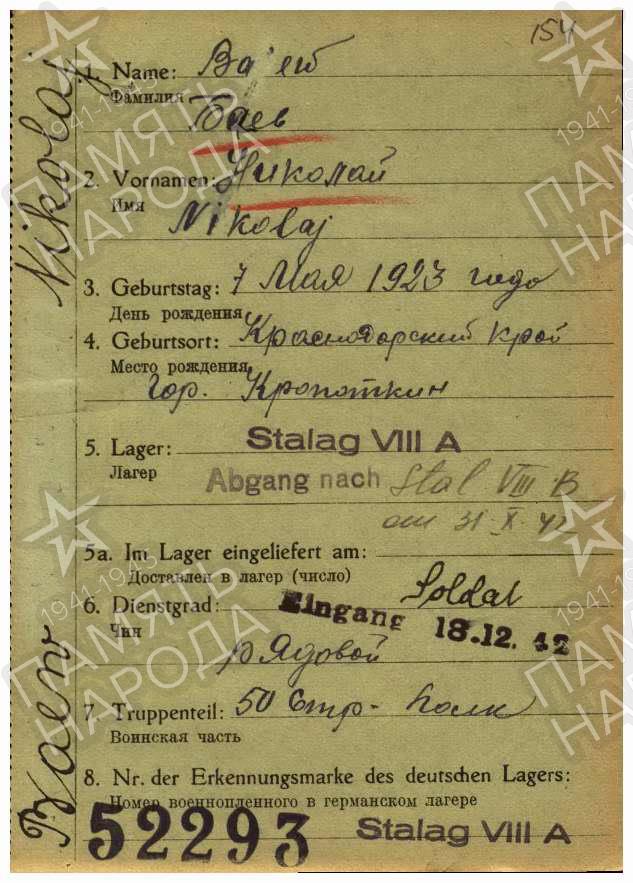 154
1. Name: Ba'ew
Фамилия
Баев
2. Vornamen: Николай
Имя
Nikolaj
3. Geburtstag: 7 Мая 1923 года
День рождения
4. Geburtsort: Краснодарский край
Место рождения
Гор. Кропоткин
5. Lager: Stalag VIII A
Лагер
Abgang nach Stal VIII B
am 31. X. 42
5a. Im Lager eingeliefert am:
Доставлен в лагер (число)
6. Dienstgrad: Soldat
Чин
Eingang 18.12. 42
рядовой
7. Truppenteil: 50 Стр- полк
Воинская часть
8. Nr. der Erkennungsmarke des deutschen Lagers:
Номер военнопленного в германском лагере
52293 Stalag VIII A
Baew Nikolaj
1941-1945
ПАМЯТЬ
НАРОДА